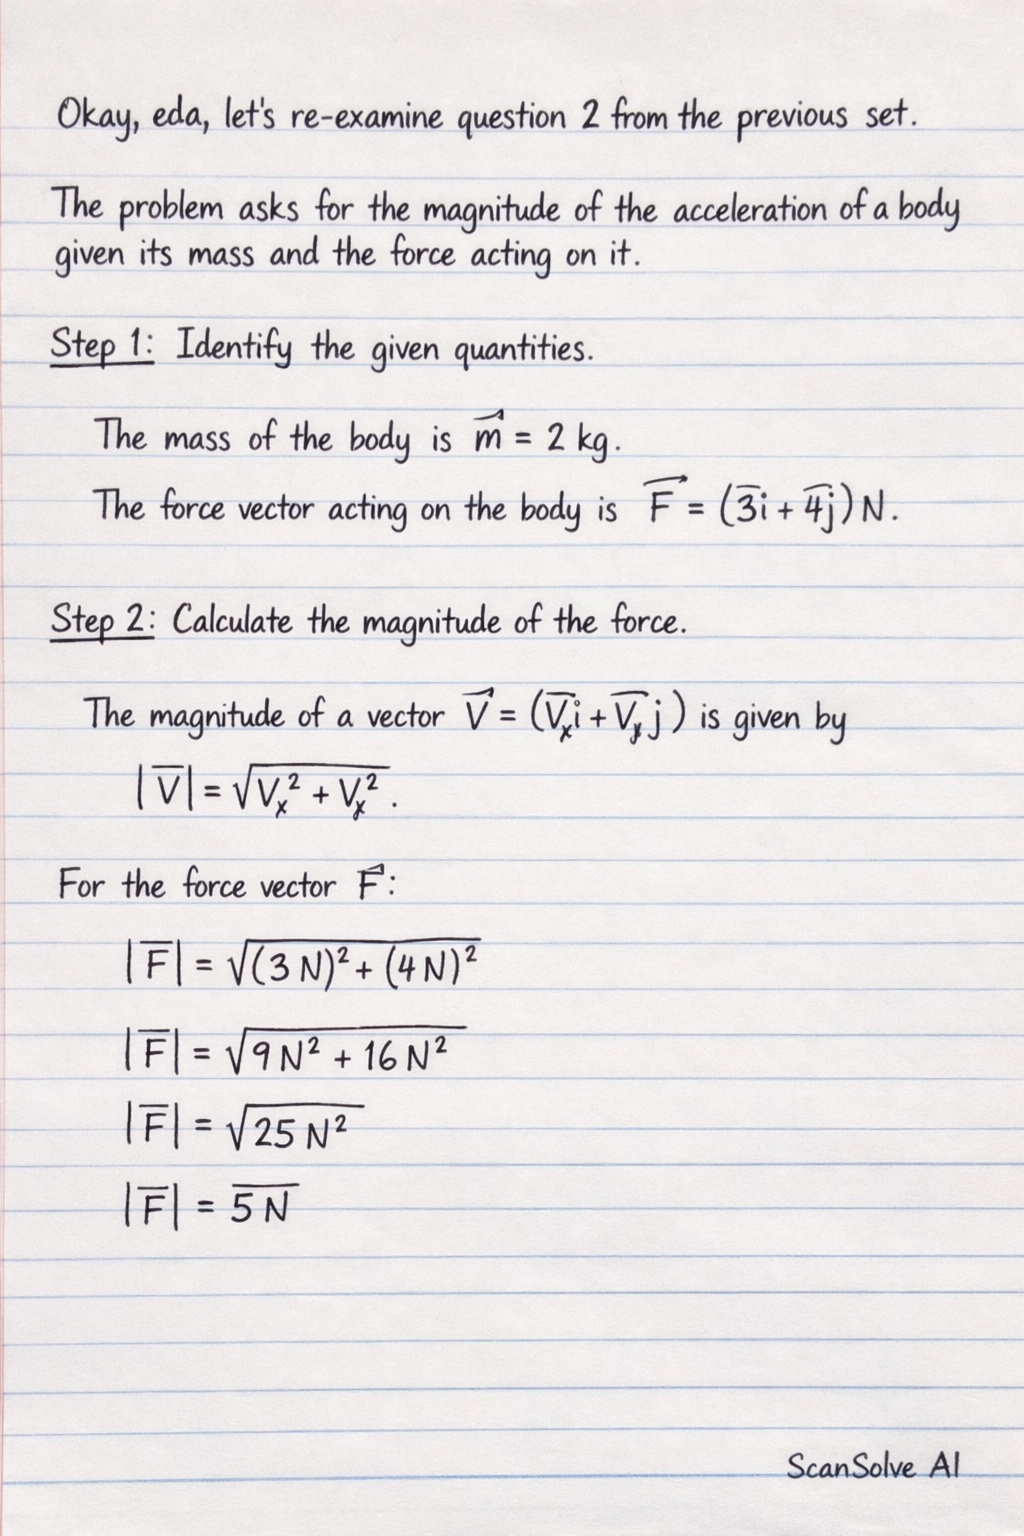 Okay, eda, let's re-examine question 2 from the previous set.
The problem asks for the magnitude of the acceleration of a body
given its mass and the force acting on it.
Step 1: Identify the given quantities.
The mass of the body is m⃗ = 2 kg.
The force vector acting on the body is F⃗ = (3̅i + 4̅j) N.
Step 2: Calculate the magnitude of the force.
The magnitude of a vector V⃗ = (V̅ₓi + V̅ᵧj) is given by
|V̅| = √(Vₓ² + Vₓ²).
For the force vector F⃗:
|F̅| = √((3 N)² + (4 N)²)
|F̅| = √(9 N² + 16 N²)
|F̅| = √(25 N²)
|F̅| = 5̅ ̅N̅
ScanSolve AI